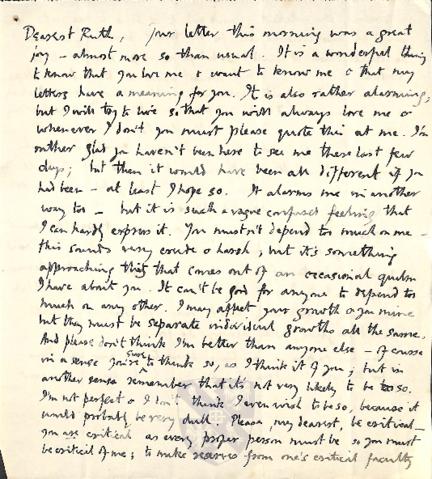 Dearest Ruth, Your letter this morning was a great
joy – almost more so than usual. It is a wonderful thing
to know that you love me & want to know me & that my
letters have a meaning for you. It is also rather alarming;
but I will try to live so that you will always love me or
whenever I don't you must please quote this at me. I'm
rather glad you haven't been here to see me these last few
days; but then it would have been all different if you
had been – at least I hope so. It alarms me in another
way too – but it is such a vague confused feeling that
I can hardly express it. You mustn't depend too much on me –
this sounds very crude & harsh, but it's something
approaching that that comes out of an occasional qualm
I have about you. It can't be good for anyone to depend too
much on any other. I may affect your growth & you mine
but they must be separate individual growths all the same.
And please don't think I'm better than anyone else – of course
in a sense you're sure to think so, as I think it of you; but in
another sense remember that it's not very likely to be so.
I'm not perfect & I don't think I even wish to be so, because it
would probably be very dull. Please, my dearest, be critical –
you are critical as every proper person must be so you must
be critical of me; to make reserves from one's critical faculty